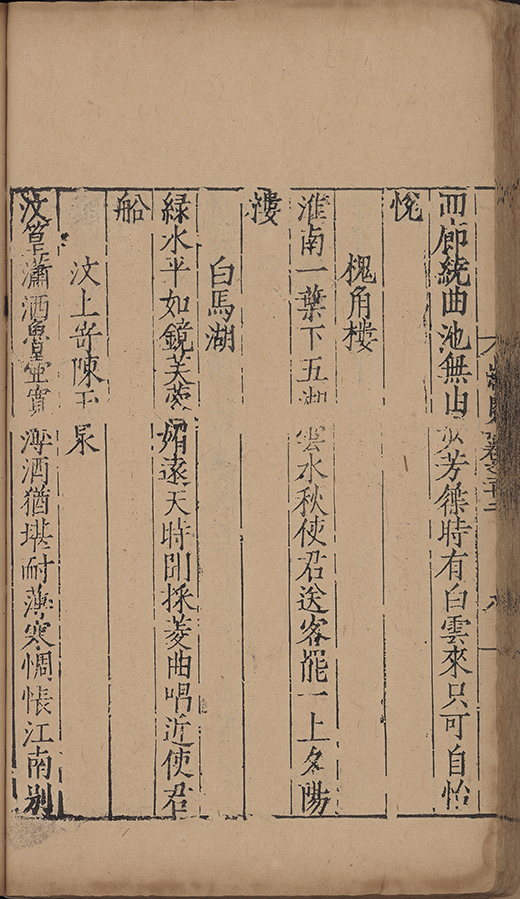 而師繞曲池無山　芳徑時有白雲來只可自怡
悅
槐角樓
淮南一葉下五湖雲水秋使君送客罷一上夕陽
樓
白馬湖
緑水平如鏡芙蓉媚遠天時聞採菱曲唱近使君
船
汶上寄陳玉泉
汶篁瀟洒魯壺實薄酒猶堪耐薄寒惆悵江南別